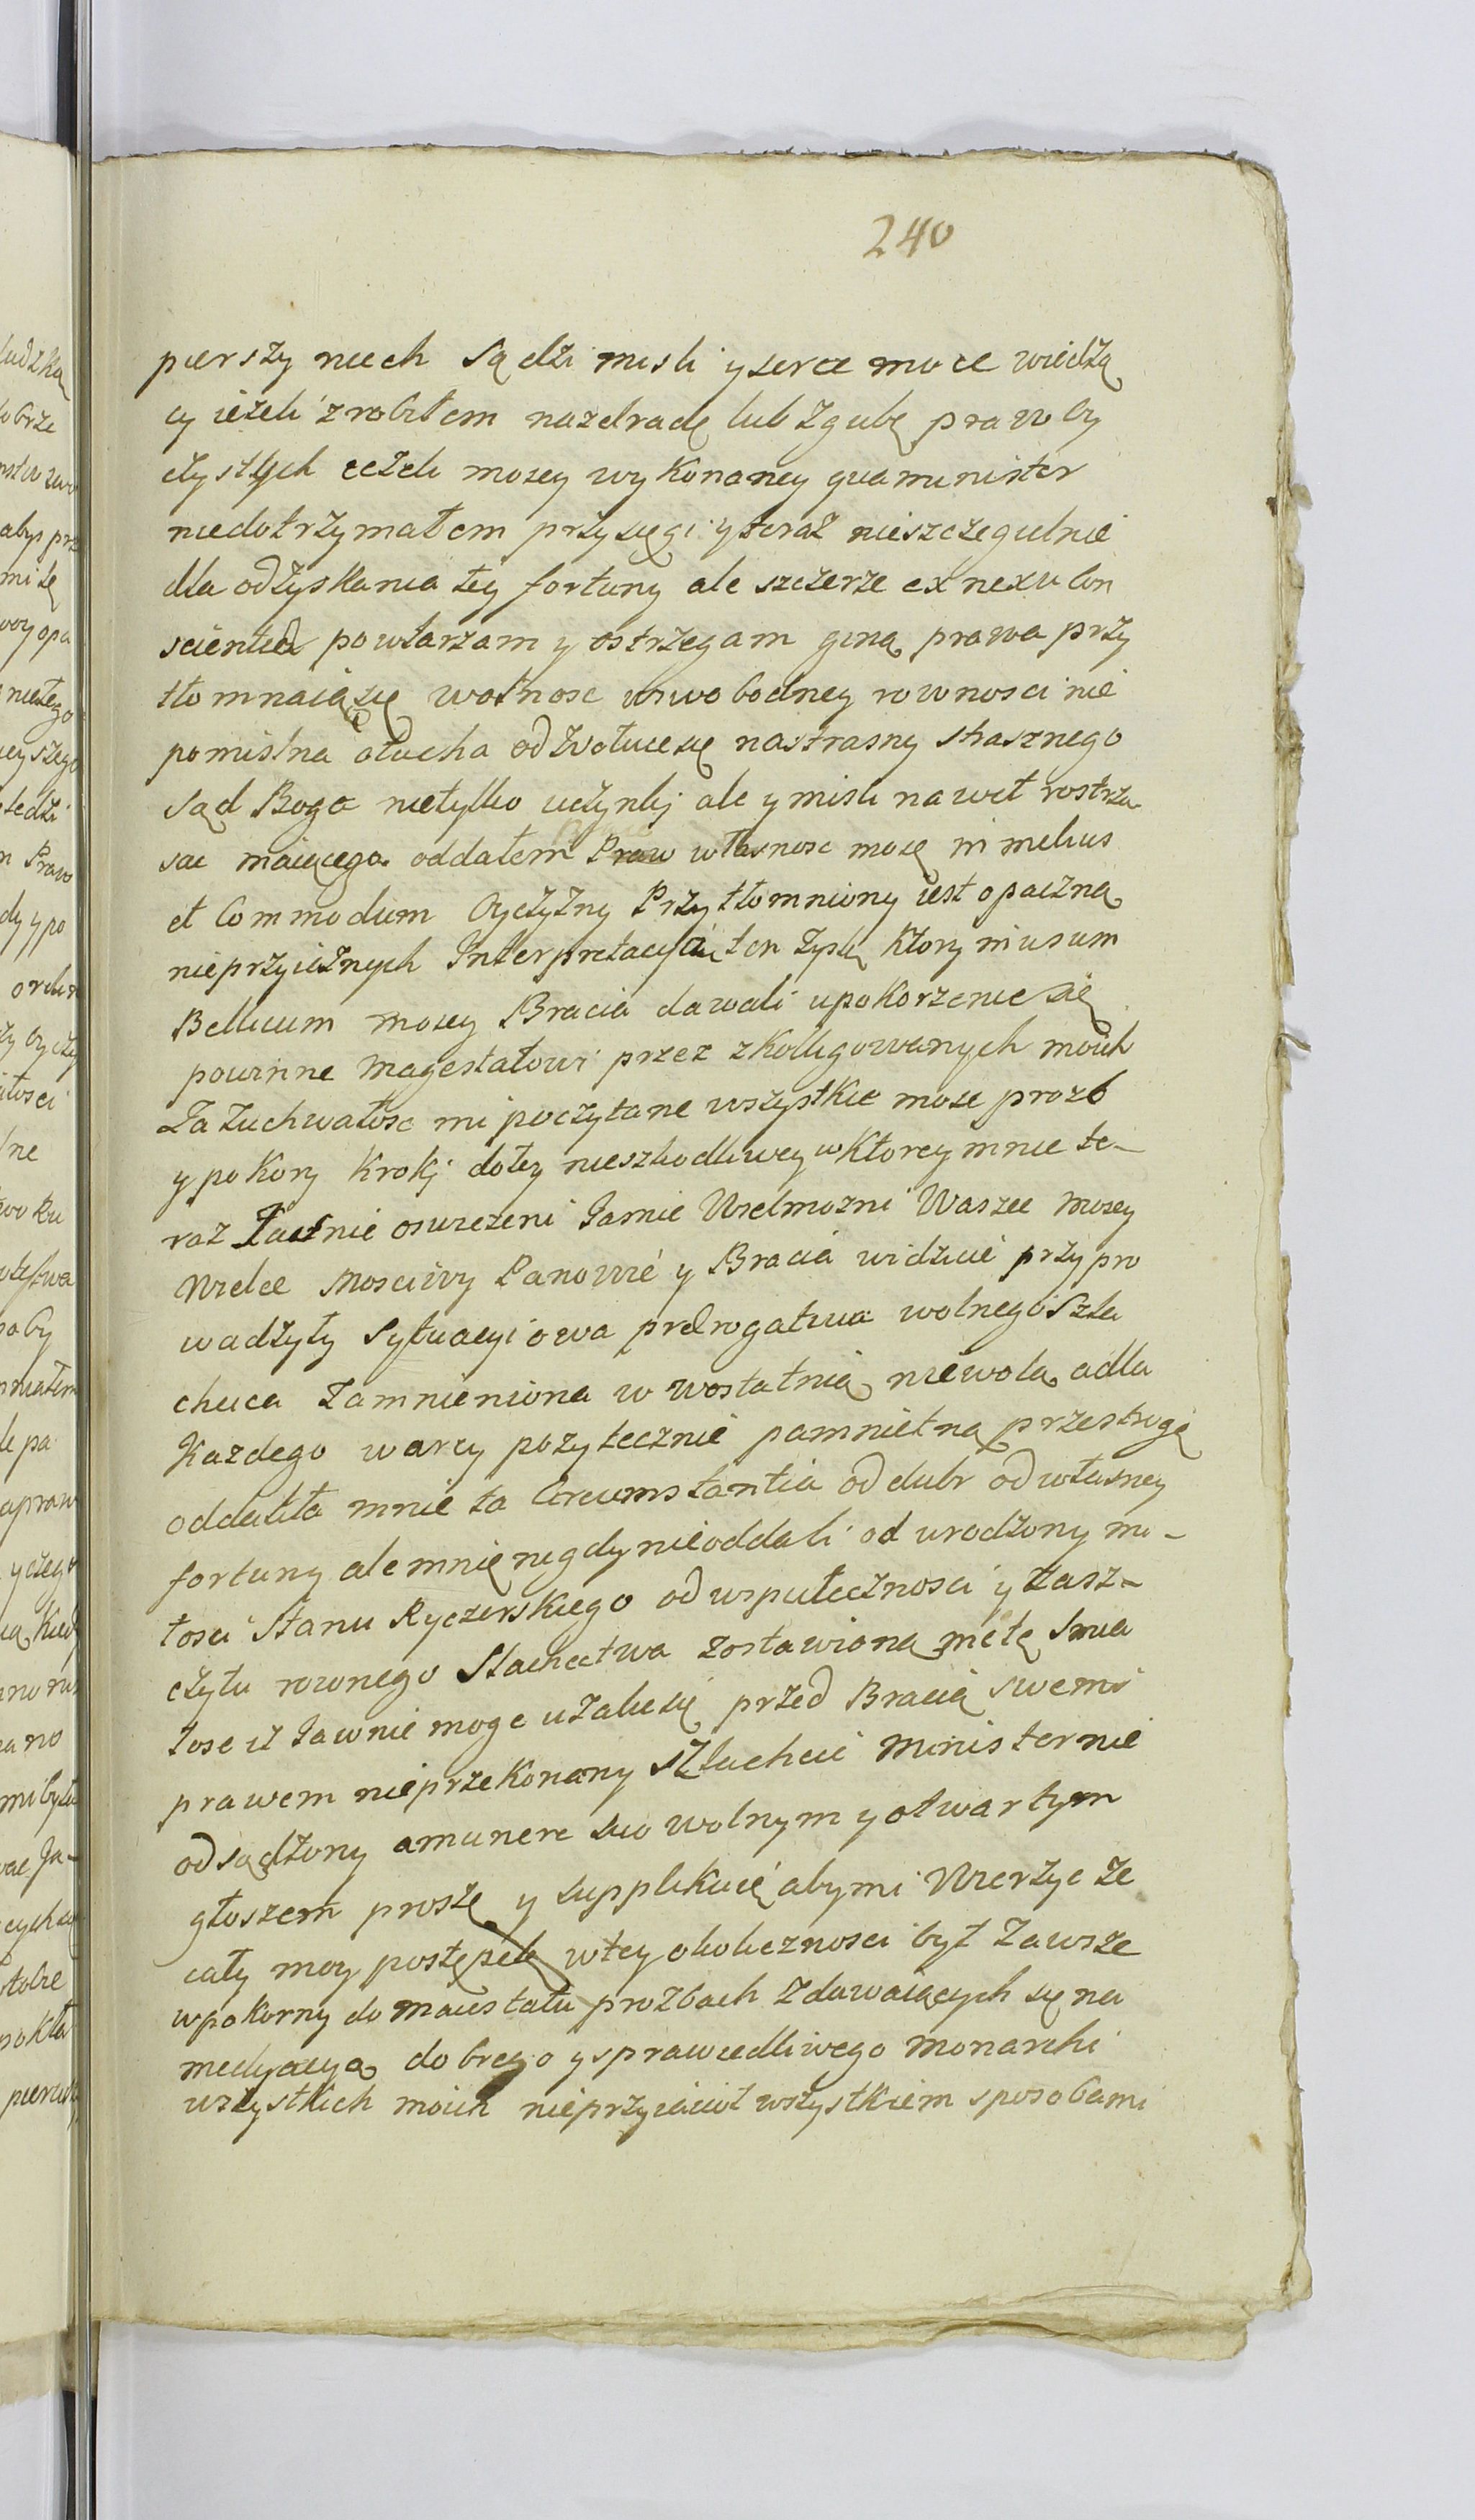 240
pierszy niech sądzi misli y serce moie wiedzą
cy iezeli zrobiłem nazdradę lub zgubę praw oy
czystych iezeli moiey wykonaney qua minister
niedotrzymałem przysięgi y teraz nieszczegulnie
dla odzyskania tey fortuny ale szczerze ex nexu con
scientia powtarzam y ostrzegam giną prawa przy
tłomnaią się wolnosc w swobodney rownosci nie
pomislna otucha odzwołuie się nastrasny strasznego
sąd Boga nietylko uczynkj ale y misli nawet rostrzą
sac maiącego oddałem Praw własnosc moię in melius
et Commodum Oyczyzny Przytłomniony iest opaczną
nieprzyiaznych Interpretacyią ten zysk ktory in usum
Bellicum moiey Bracia dawali upokorzenie się
powinne Magestatowi przez zkolligowanych moich
Za zuchwałosc mi poczytane wszystkie moie prozb
y pokory krokj dotey nieszkodliwey w ktorey mnie te-
raz Jasnie oswieceni Jasnie Wielmozni Waszec moiey
Wielce Mosciwy Panowie y Bracia widzicie przypro
wadzyły sytuacyi owa prerogatiwa wolnego Szla
chcica zamnieniona w wostatnią niewolą adla
Kazdego warcy pozytecznie pamnietną przestrogę
oddaliła mnie ta Circumstantia od dubr od własney
fortuny ale mnię nigdy nieoddali od urodzony mi-
łosci Stanu Ryczerskiego od wspułecznosci y zasz-
czytu rownego Slachectwa zostawioną metę smia
łosc iz Jawnie moge uzalic się przed Bracią swemi
prawem nieprzekonany szlachcic Minister nie
odsądzony a munere suo wolnym y otwartym
głoszem proszę y supplikuię aby mi Wierzyc ze
cały moy postępek wtey okolicznosci był zawsze
wpokorny do maiestatu prozbach zdawaiących się na
medyacyą dobrego y sprawiedliwego Monarchi
wszystkich moich nieprzyiacioł wszystkiem sposobami